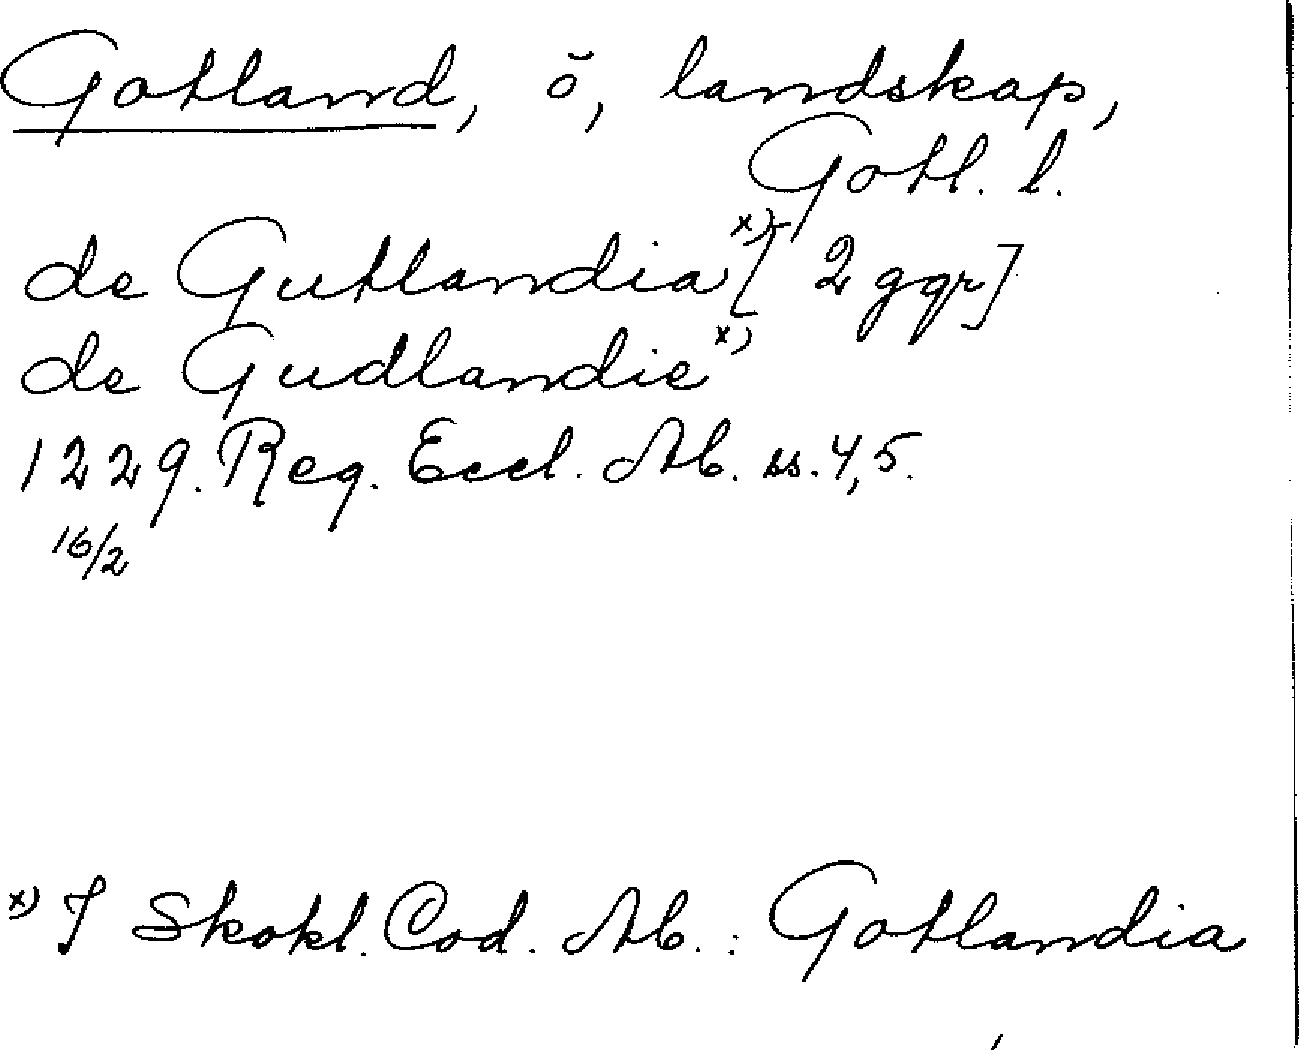 Gotland, ö, landskap,
Gotl. l.
de Gutlandia x) [2 ggr]
de Gudlandie x)
1229. Reg. Eccl. Ab. ss. 4,5.
16/2
x) I Skokl. Cod. Ab.: Gotlandia